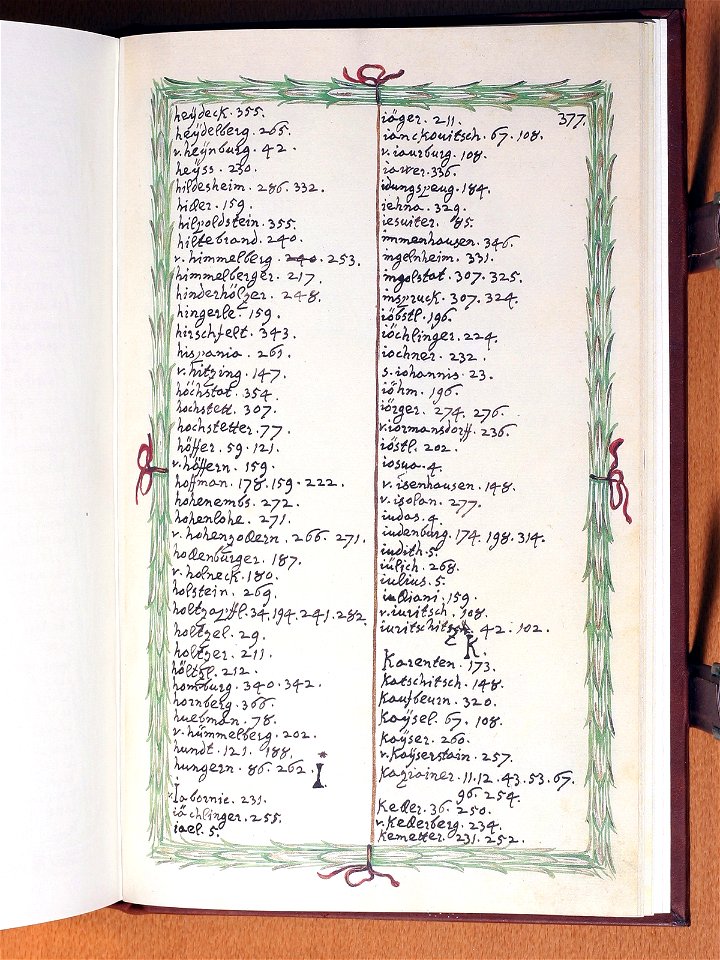 heÿdeck. 355.
heÿdelberg. 265.
v. heÿnburg. 42.
heÿss. 230.
hildesheim. 286. 332.
hider. 159.
hilpoldstein. 355.
hiltebrand. 240.
v. himmelberg. 240. 253.
himmelberger. 217.
hinderhölzer. 248.
hingerle. 159.
hirschfelt. 343.
hispania. 261.
v. hitzing. 147.
höchstat. 354.
hochstett. 307.
hochstetter. 77.
höffer. 59. 121.
v. höffern. 159.
hoffman. 178. 159. 222.
hohenembs. 272.
hohenlohe. 271.
v. hohenzollern. 266. 271.
hollenburger. 187.
v. holneck. 180.
holstein. 269.
holtzapffl. 34. 194. 241. 282.
holtzel. 29.
holtzer. 211.
höltzl. 212.
homburg. 340. 342.
hornberg. 366.
huebman. 78.
v. hümmelberg. 202.
hundt. 121. 188.
hungern. 86. 262.
I.
v. Iabornic. 231.
iächlinger. 255.
iael. 5.
377.
iäger. 211.
ianckouitsch. 67. 108.
v. iaurburg. 108.
iawer. 336.
idungspeug. 184.
iehna. 329.
iesuiter. 85.
immenhausen. 346.
ingelnheim. 331.
ingolstat. 307. 325.
inspruck. 307. 324.
iöbstl. 196.
iöchlinger. 224.
iochner. 232.
s. iohannis. 23.
iöhm. 196.
iörger. 274. 276.
v. iormansdorff. 236.
iöstl. 202.
iosua. 4.
v. isenhausen. 148.
v. isolan. 277.
iudas. 4.
iudenburg. 174. 198. 314.
iudith. 5.
iülich. 268.
iulius. 5.
iulliani. 159.
v. iuritsch. 108.
iuritschitsch. 42. 102.
K.
Karenten. 173.
Katschitsch. 148.
Kaufbeurn. 320.
Kaÿsel. 67. 108.
Kaÿser. 260.
v. Kaÿserstain. 257.
Kazianer. 11. 12. 43. 53. 67.
96. 254.
Keller. 36. 250.
v. Kellerberg. 234.
Kemetter. 231. 252.